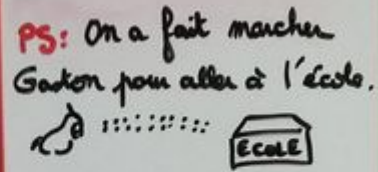 PS: On a fait marcher
Gaston pour aller à l'école.
ECOLE